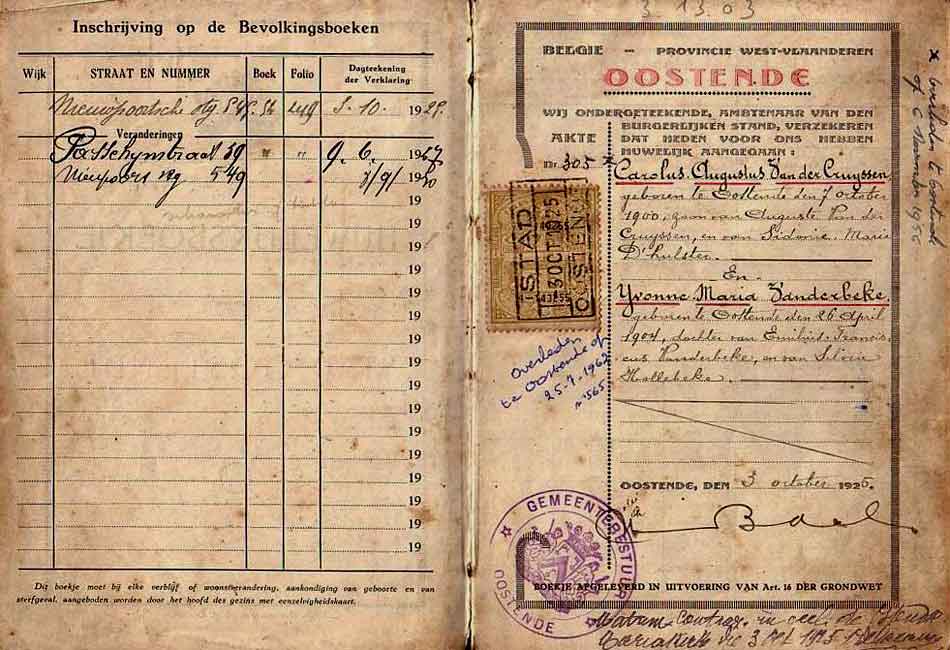 Inschrijving op de Bevolkingsboeken
Wijk STRAAT EN NUMMER Boek Folio Dagteekening der Verklaring
Nieuwpoortsche stg. 549. 5. 10. 1925.
Veranderingen
59 " " 9. 6. 1927
Nieupoort stg 549 3/9/ 1930
19
19
19
19
19
19
19
19
19
19
19
19
19
19
19
Dit boekje moet bij elke verblijf of woonstverandering, aankondiging van geboorte en van
sterfgeval, aangeboden worden door het hoofd des gezins met eenzelvigheidskaart.
3. 13. 03
BELGIE — PROVINCIE WEST-VLAANDEREN
OOSTENDE
WIJ ONDERGETEEKENDE, AMBTENAAR VAN DEN
BURGERLIJKEN STAND, VERZEKEREN
DAT HEDEN VOOR ONS HEBBEN
HUWELIJK AANGEGAAN :
AKTE
Nr. 305
Carolus Augustus Van der Cruyssen,
geboren te Oostende den 7 october
1900, zoon van Auguste Van der
Cruyssen, en van Sidonie Marie
D'hulster.
En
Yvonne Maria Vanderbeke,
geboren te Oostende den 26 April
1904, dochter van Emilius Francis-
cus Vanderbeke, en van Silvie
Hollebeke.
STAD
3 OCT 1925
OOSTENDE
overleden
te Oostende op
25-7-1962
n° 565
x overleden te Oostende
op 1956
OOSTENDE, DEN 3 october 1925.
GEMEENTEBESTUUR
OOSTENDE
BOEKJE AFGELEVERD IN UITVOERING VAN Art. 16 DER GRONDWET
in eccl.
die 3 Oct 1925